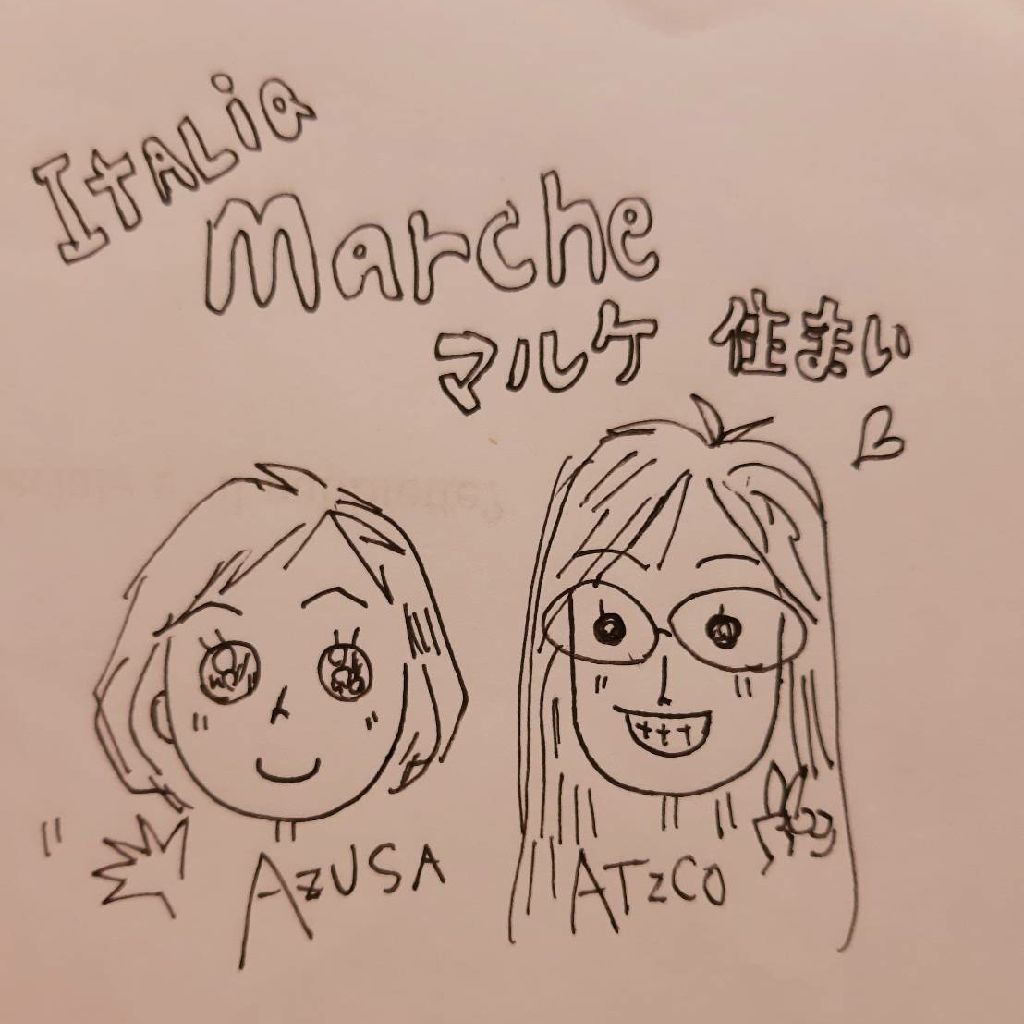 ITALia
Marche
マルケ 住まい
AZUSA
ATZCO